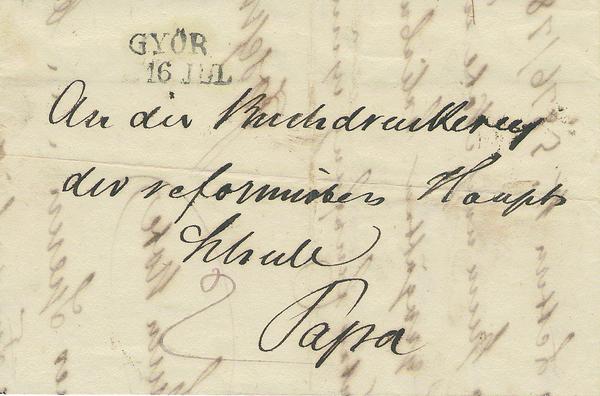 GYÖR
16 JUL
An die Buchdruckerey
der reformirten Haupt
Schule
Papa